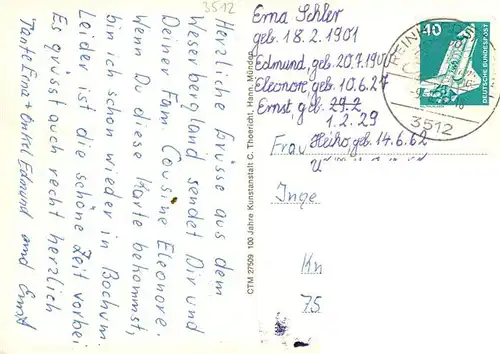 3512
Herzliche Grüsse aus dem
Weserbergland sendet Dir und
Deiner Fam. Cousine Eleonore.
Wenn Du diese Karte bekommst,
bin ich schon wieder in Bochum.
Leider ist die schöne Zeit vorbei
Es grüsst auch recht herzlich
Tante Erna + Onkel Edmund und Ernst
CTM 27509 100 Jahre Kunstanstalt C. Theericht, Hann. Münden
Erna Sehler
geb. 18.2.1901
Edmund, geb. 20.7.1900
Eleonore, geb. 10.6.27
Ernst, geb. 29.2
1.2.29
Heiko, geb. 14.6.62
Frau
Inge
Kn
75
40
DEUTSCHE BUNDESPOST
REINH
3512